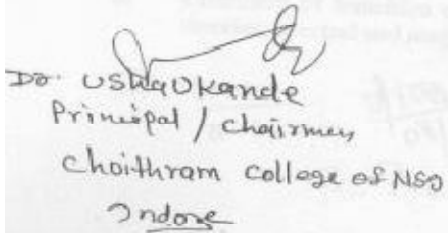 Dr. Usha Ukande
Principal / Chairmen
Choithram College of NSG
Indore